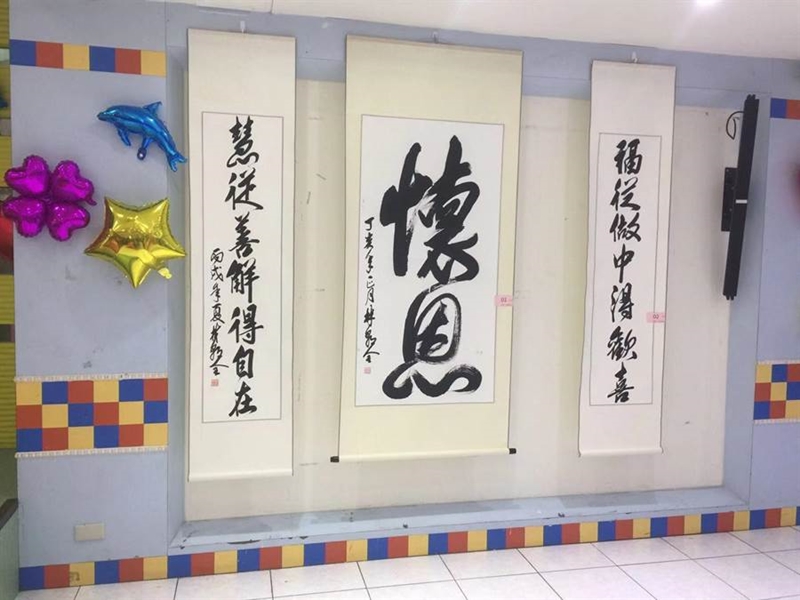 福從做中得歡喜
懷恩
丁亥年正月
慧從善解得自在
丙戌年夏